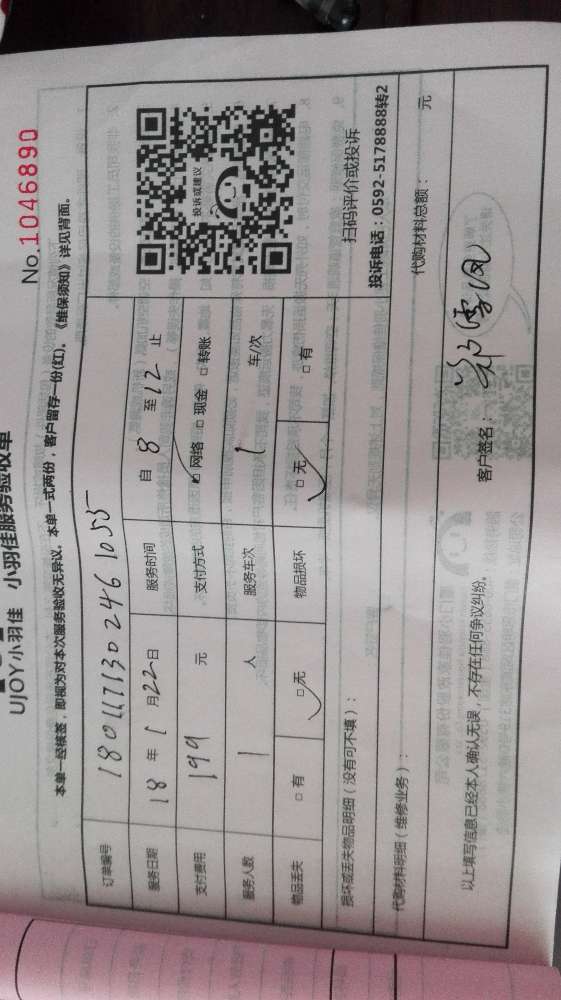 UJOY小羽佳 小羽佳服务验收单
No.1046890
本单一经核签，即视为对本次服务验收无异议，本单一式两份，客户留存一份(红)，《维保须知》详见背面。
订单编号 180117130246 1055
服务日期 18 年 1 月 22 日 服务时间 自 8 至 12 止
支付费用 199 元 支付方式 □网络 □现金 □转账
服务人数 1 人 服务车次 1 车/次
物品丢失 □有 □无 物品损坏 □无 □有
投诉或建议
扫码评价或投诉
投诉电话：0592-5178888转2
损坏或丢失物品明细（没有可不填）：
代购材料明细（维修业务）： 代购材料总额： 元
以上填写信息已经本人确认无误，不存在任何争议纠纷。 客户签名：